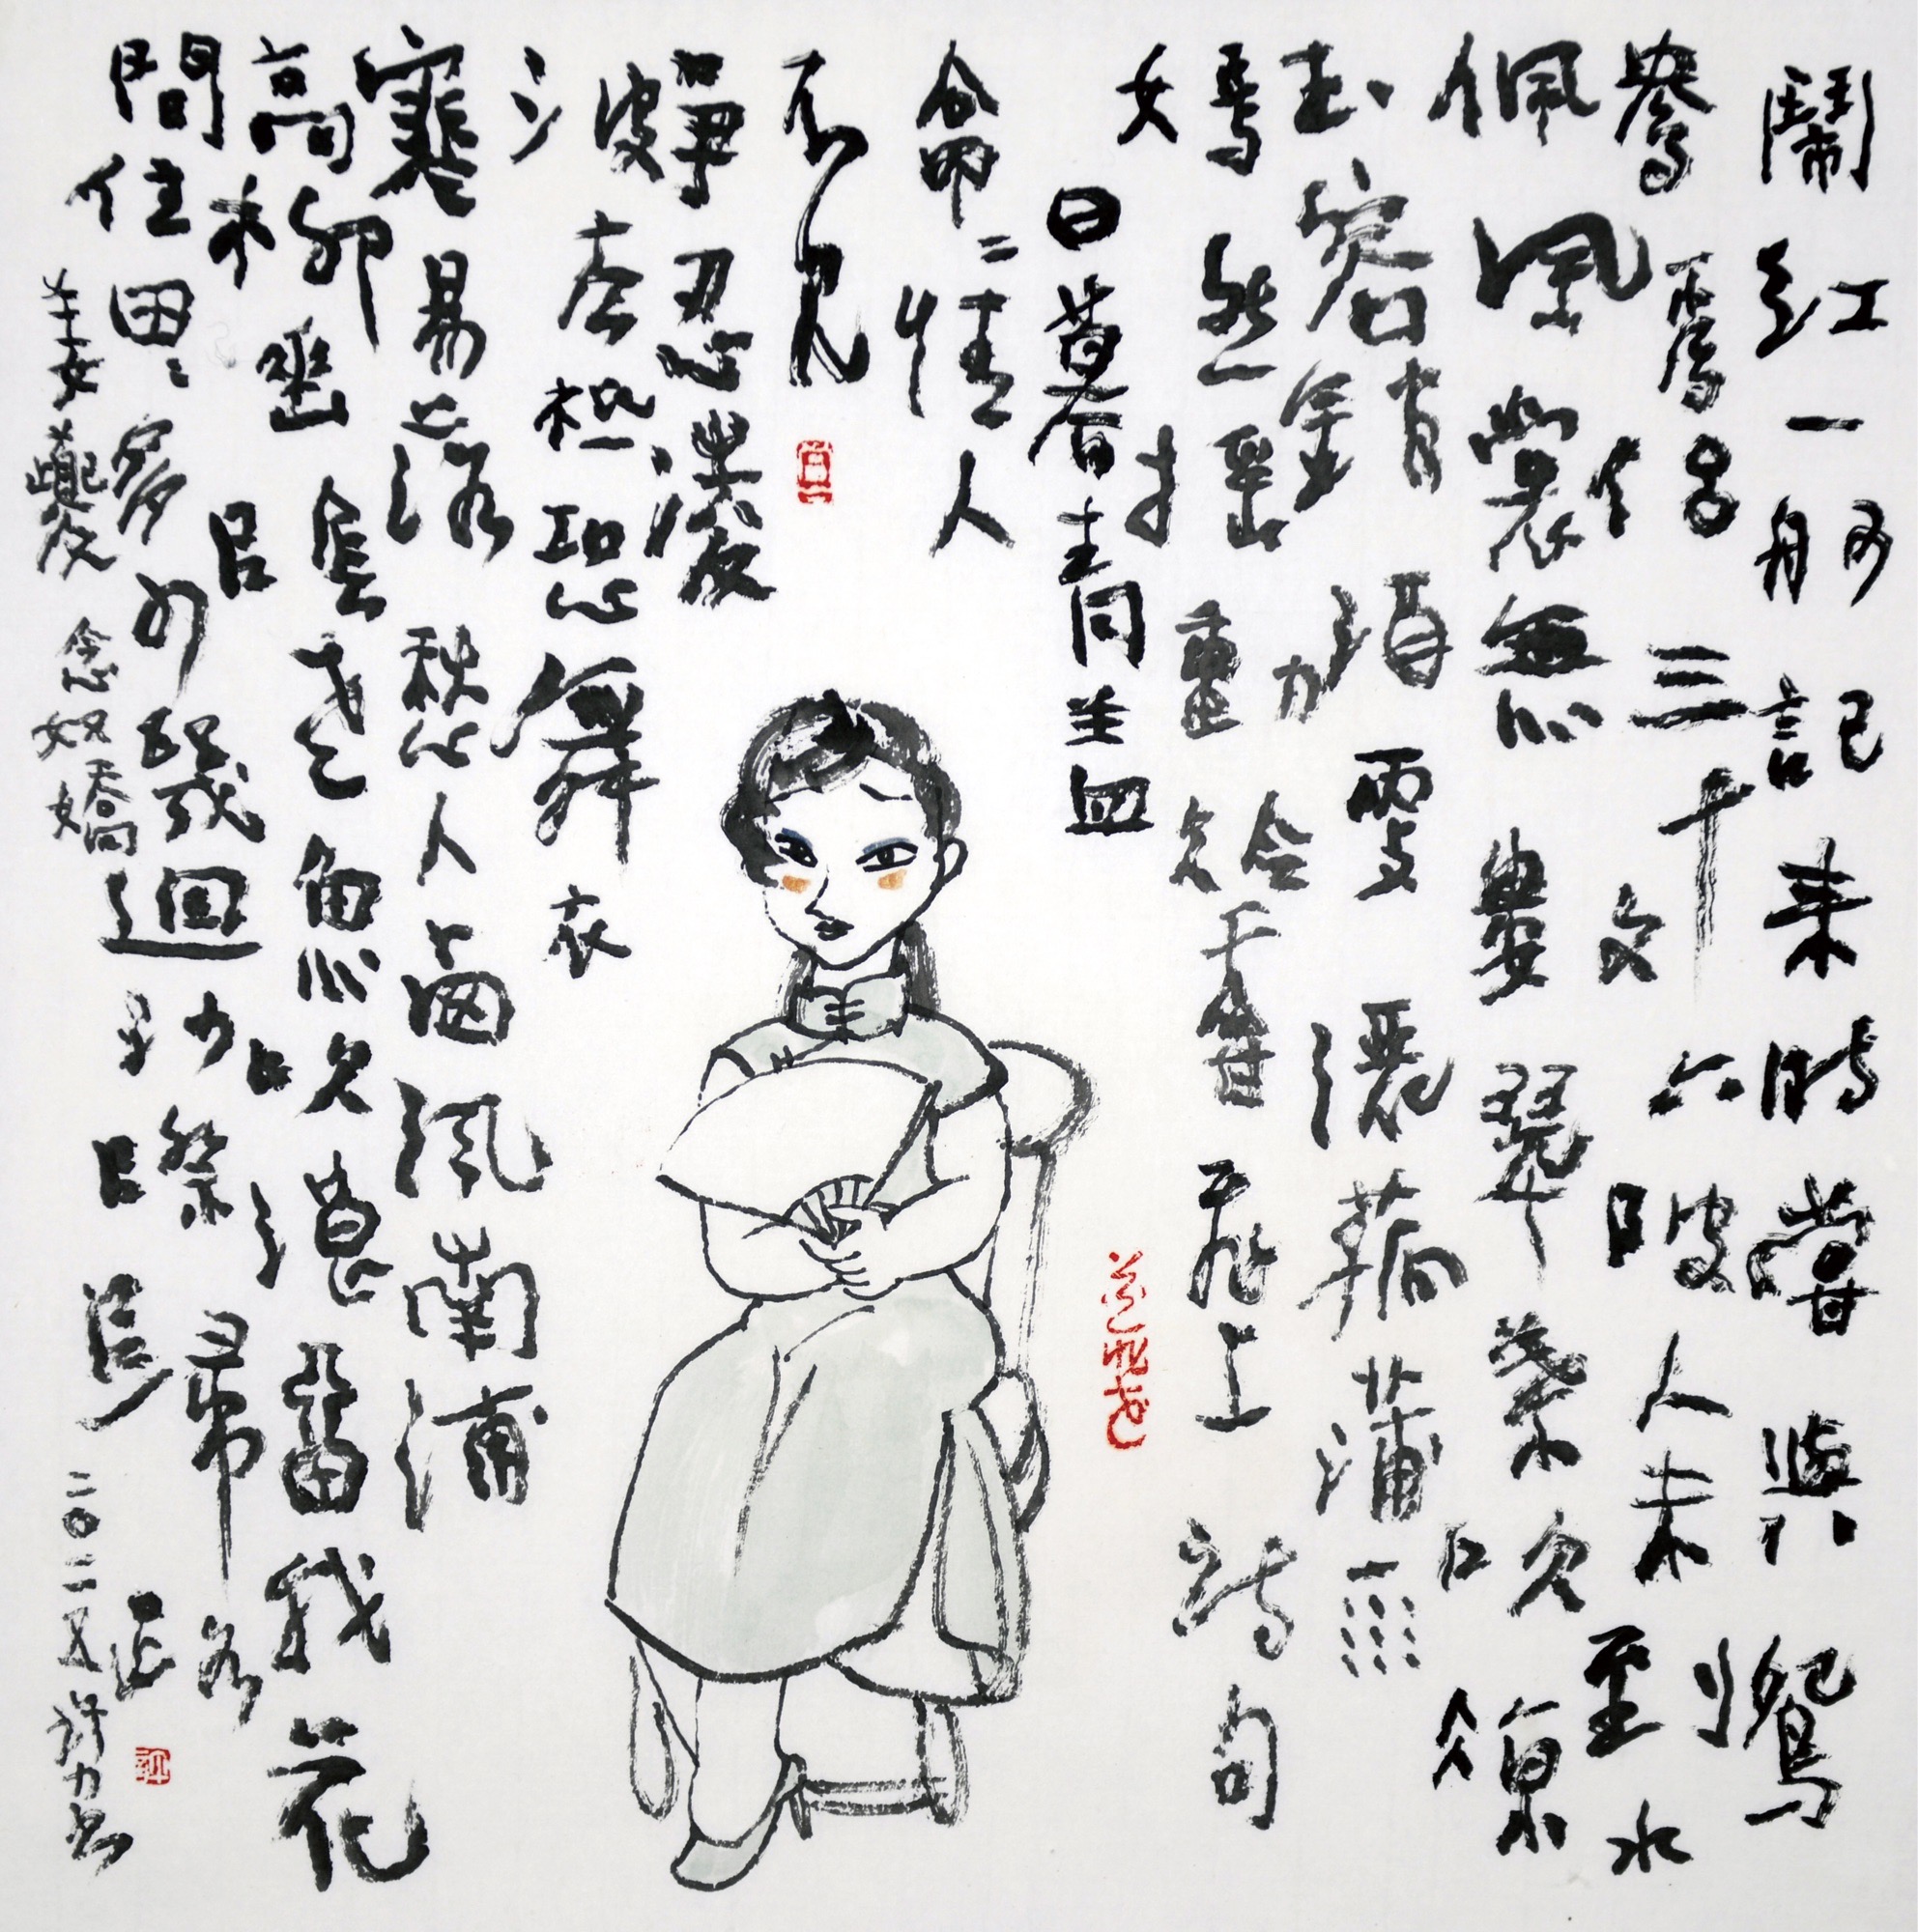 鬧紅一舸記來時嘗與鴛
鴦爲侶三十六陂人未到水
佩風裳無數翠葉吹涼
玉容銷酒更灑菰蒲雨
嫣然摇動冷香飛上詩句
日暮青盖
亭二情人
不見
爭忍淩
波去祗恐舞衣
寒易落愁入西風南浦
高柳垂陰老魚吹浪留我花
間住田々多少幾迴沙際歸路
姜夔 念奴嬌